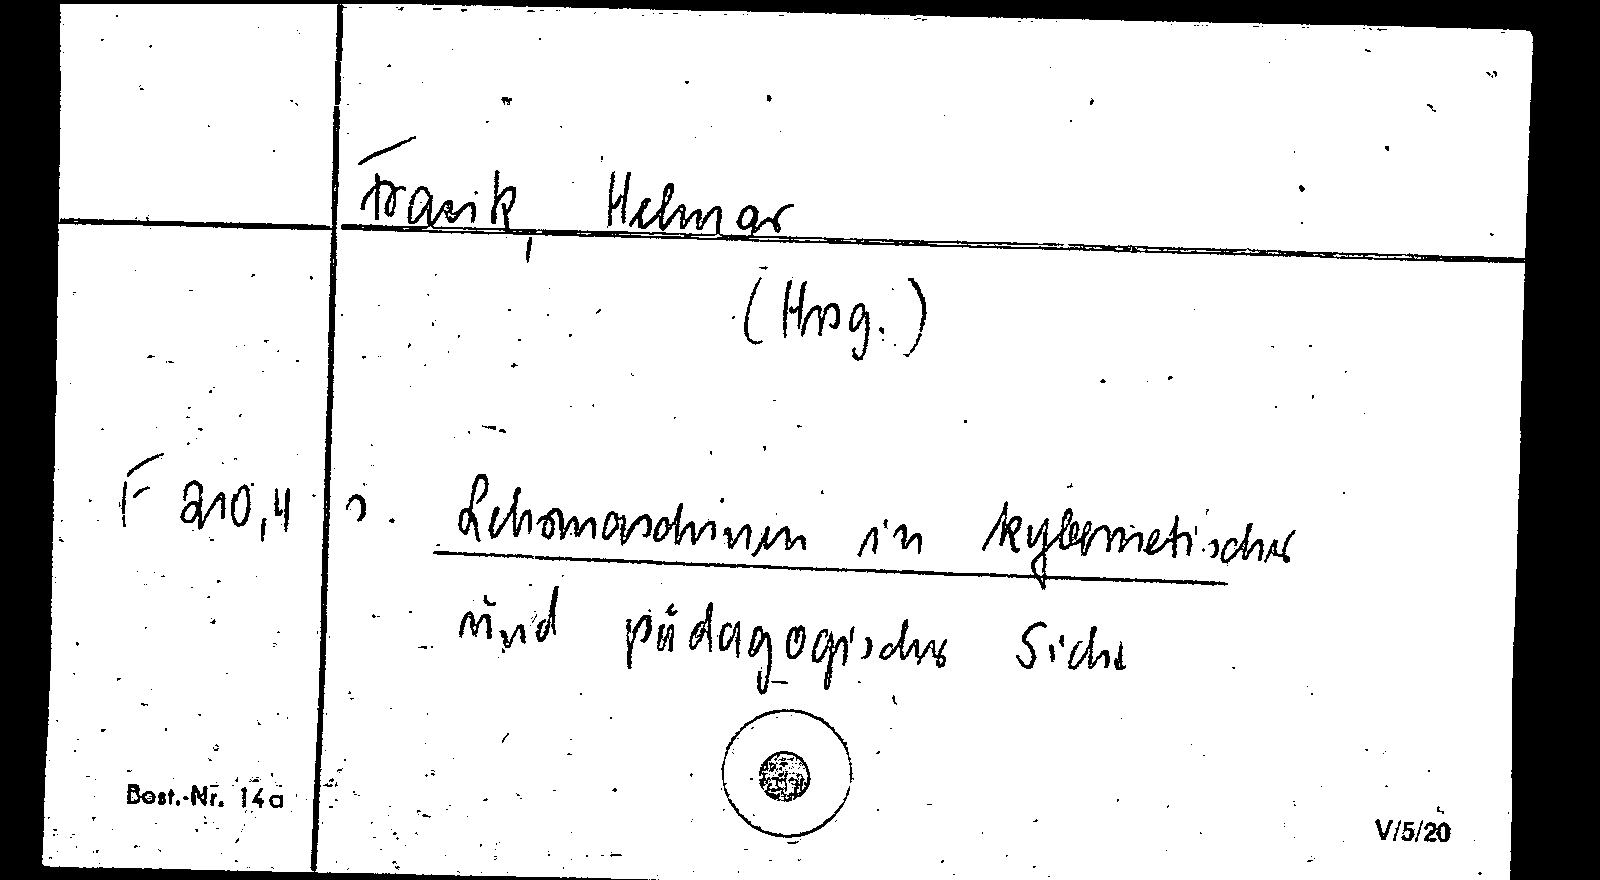 Frank, Helmar
(Hrsg.)
F 210,4 s. Lehrmaschinen in kybernetischer
und pädagogischer Sicht
Best.-Nr. 14a
V/5/20